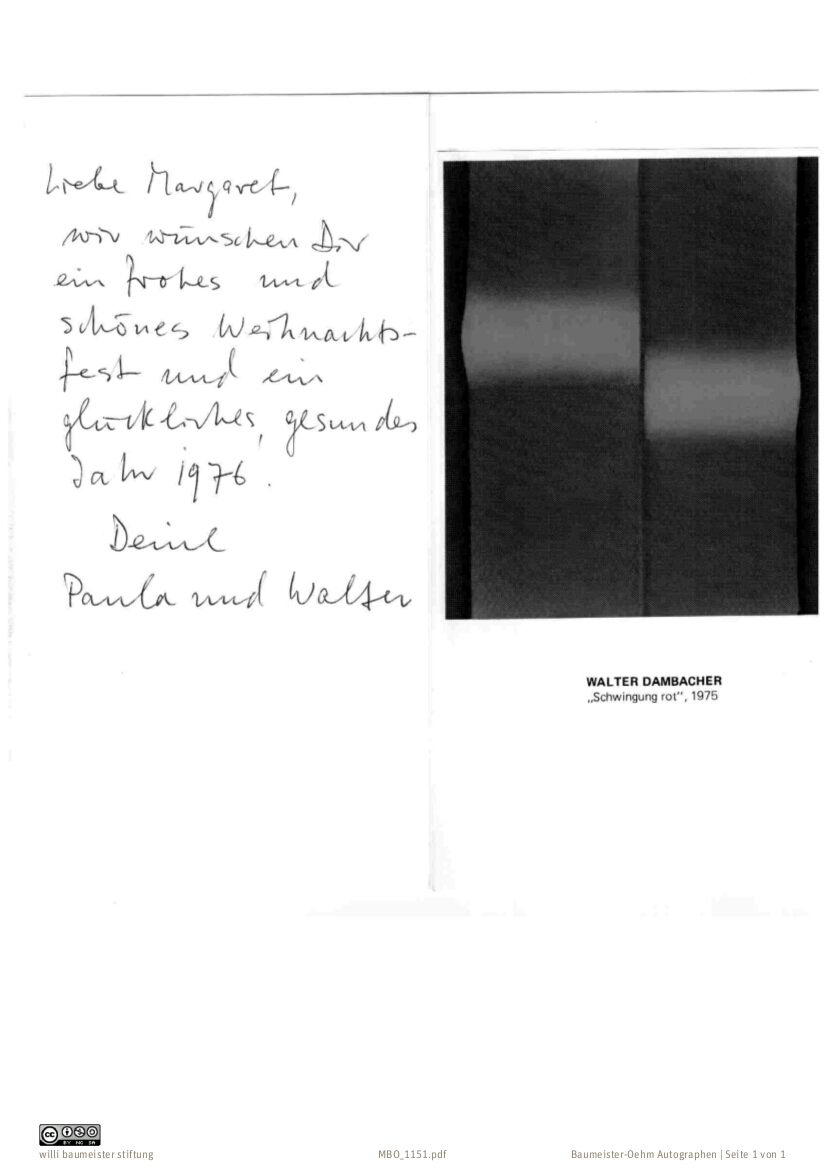 Liebe Margaret,
wir wünschen Dir
ein frohes und
schönes Weihnachts-
fest und ein
glückliches, gesundes
Jahr 1976.
Deine
Paula und Walter
WALTER DAMBACHER
„Schwingung rot“, 1975
cc BY NC SA
willi baumeister stiftung
MBO_1151.pdf
Baumeister-Oehm Autographen | Seite 1 von 1